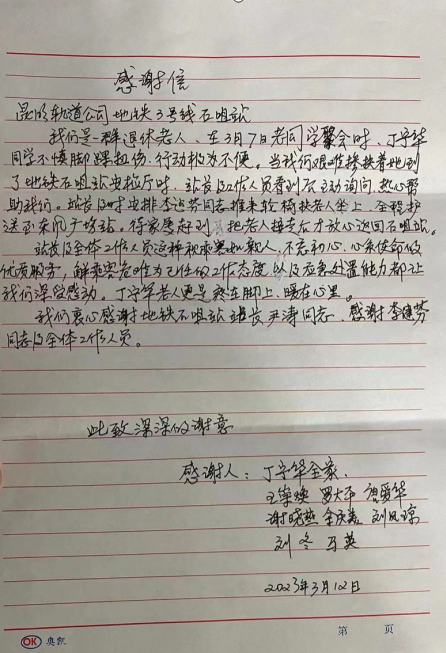 感谢信
昆明轨道公司地铁3号线石咀站
我们是一群退休老人，在3月7日老同学聚会时，丁守华
同学不慎脚踝拉伤，行动极为不便。当我们艰难搀扶着她到
了地铁石咀站安检厅时，站长及工作人员看到后主动询问，热心帮
助我们。站长及时安排李建芬同志推来轮椅扶老人坐上，全程护
送至出闸广场站。待家属赶到，把老人接走后才放心返回石咀站。
站长及全体工作人员这种视乘客如亲人，不忘初心、心系使命的
优质服务，解乘客危难为己任的工作态度以及应急处置能力都让
我们深受感动。丁守华老人更是疼在脚上，暖在心里。
我们衷心感谢地铁石咀站站长尹涛同志，感谢李建芬
同志及全体工作人员。
此致深深的谢意
感谢人：丁守华全家、
罗大 华
谢晓燕 刘凤琼
刘冬 马英
2023年3月12日
OK 奥凯 第 页